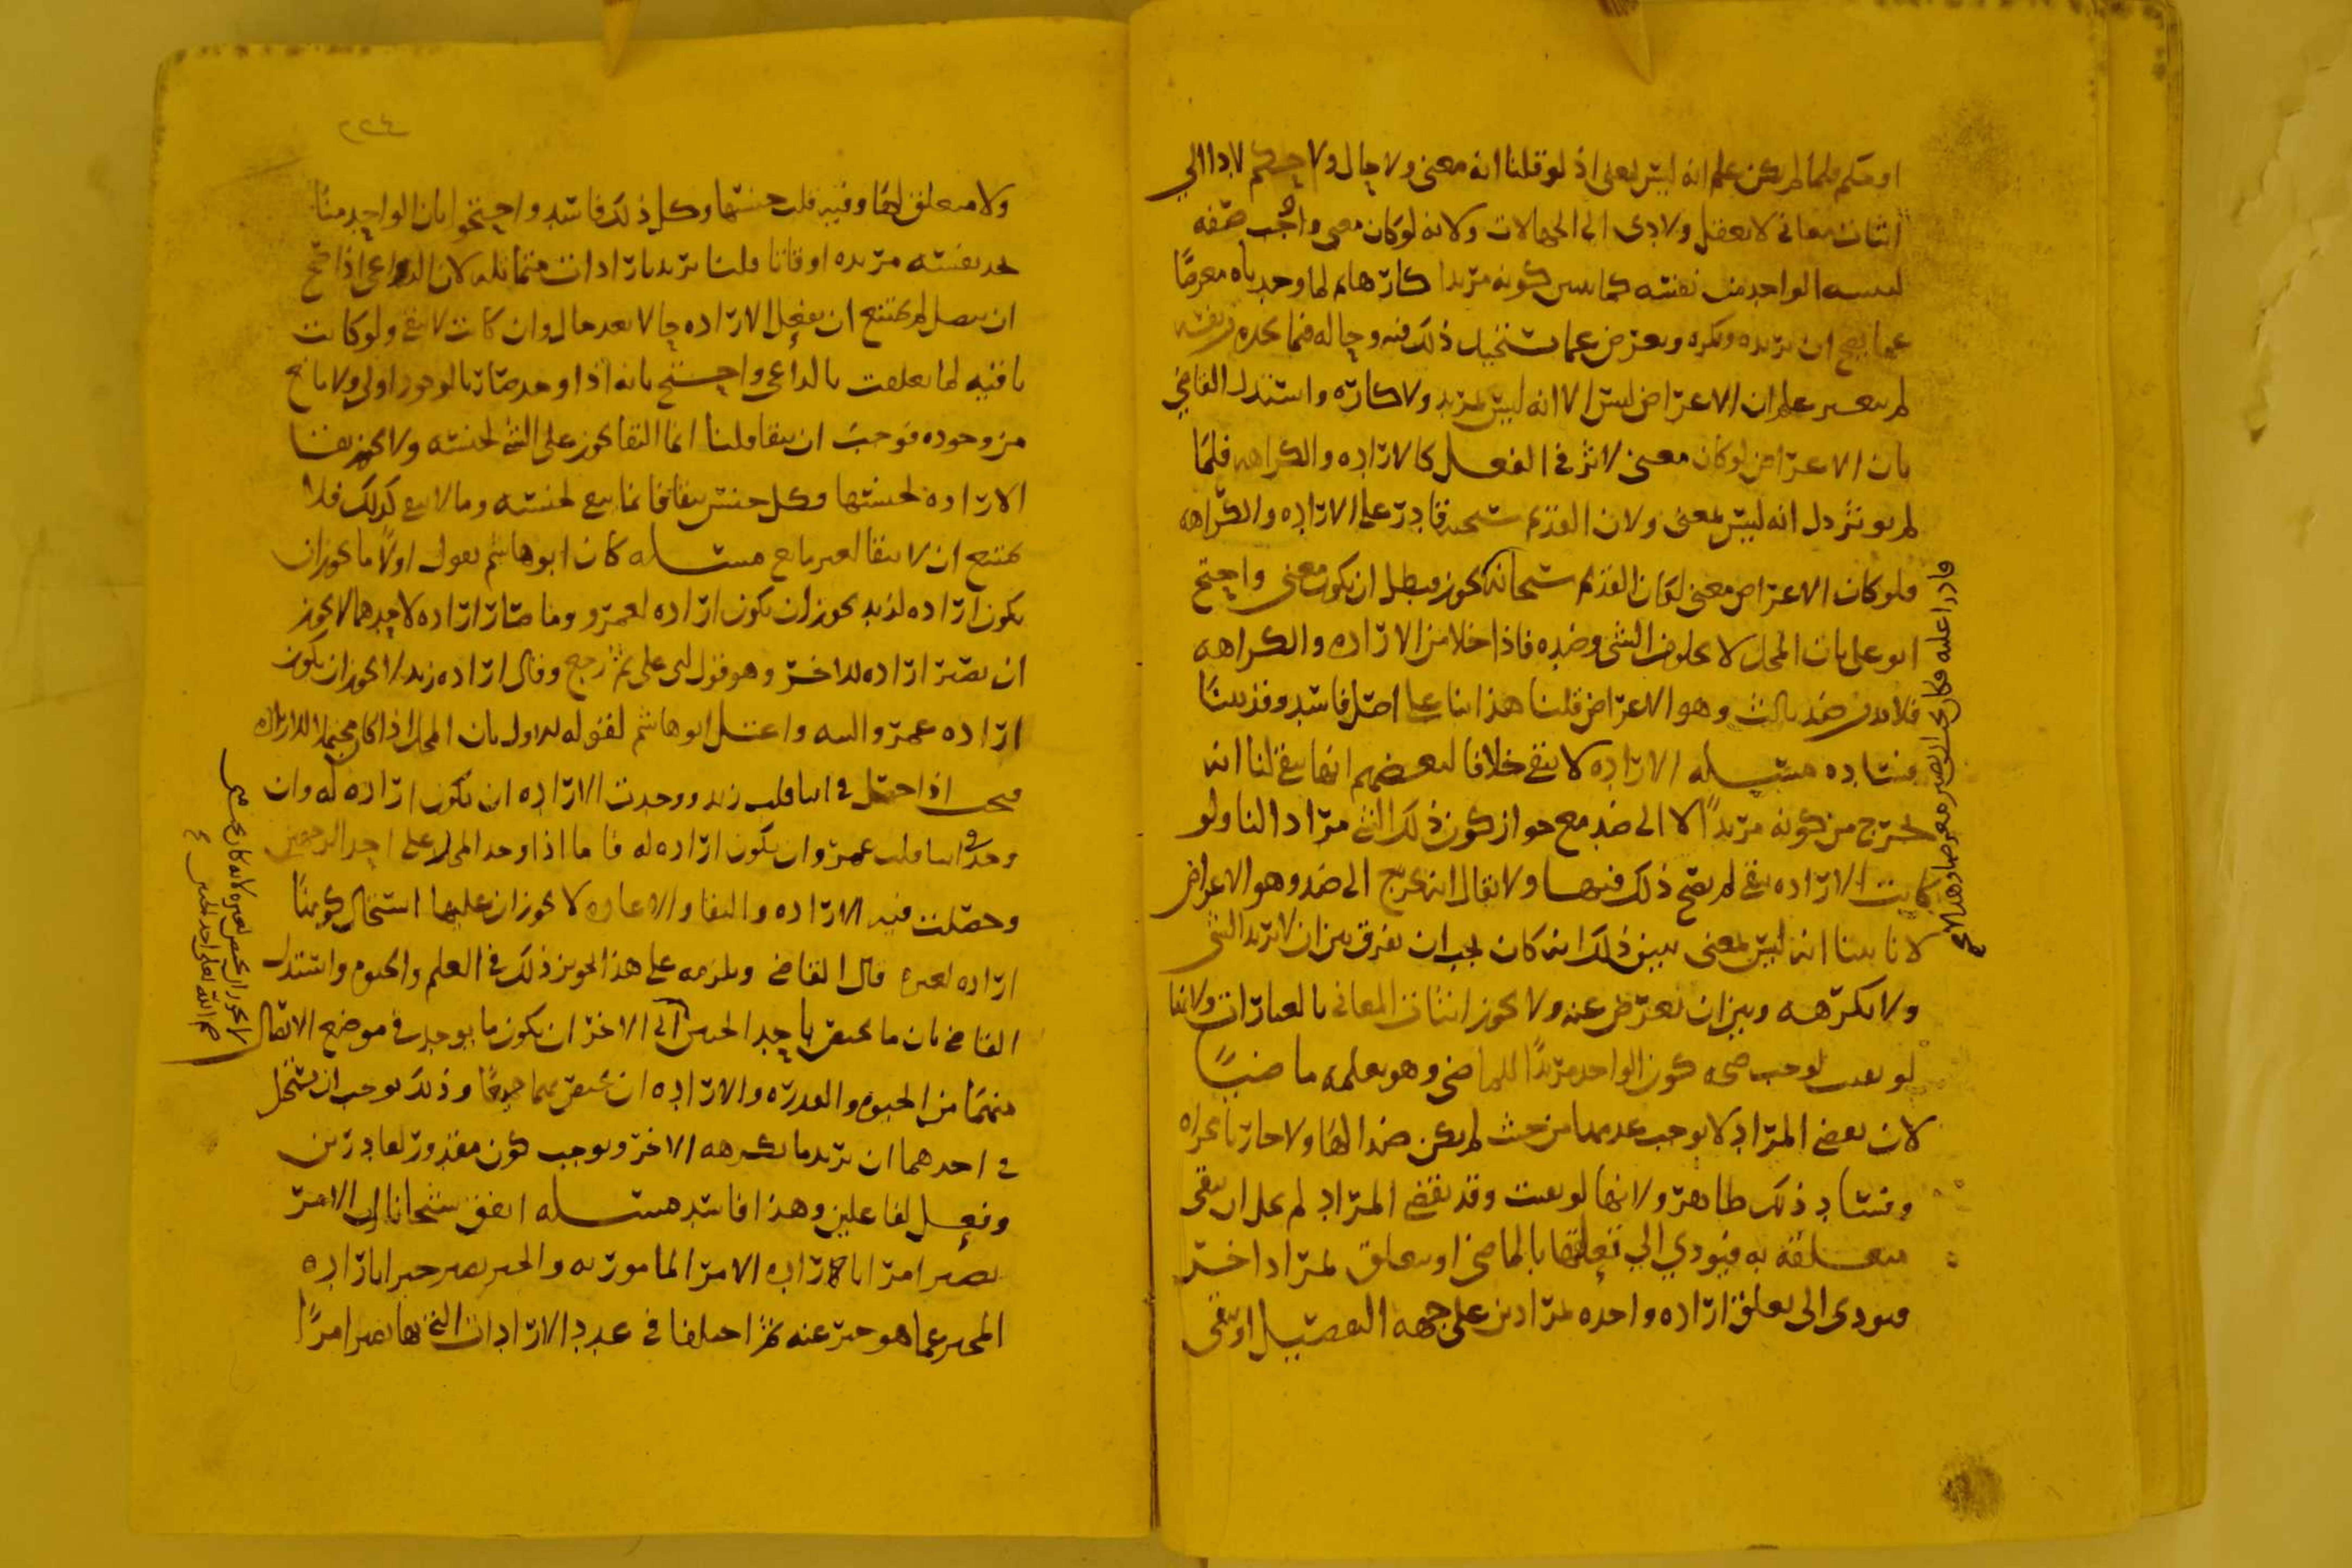 او حكم فلما لم يكن علم انه ليس بمعنى اذ لو قلنا انه معنى ولا حال ولا حكم لادا الى
اثبات معاني لا تعقل ولادى الى الجهالات ولانه لو كان معنى واوجب صفه
لنفسه الواحد من نفسه كما تبين كونه مريدا كارها لما وجدناه معرضا
عما يصح ان يريده ويكره ويعرض عما يستحيل ذلك فيه وحاله فيما يجده من نفسه
لم يتغير علم ان الاعراض ليس الا انه ليس بمريد ولا كاره واستدل القاضي
بان الاعراض لو كان معنى لاثر في الفعل كالاراده والكراهه فلما
لم يوثر دل انه ليس بمعنى ولان القديم سبحنه قادر على الاراده والكراهه
فلو كان الاعراض معنى لكان القديم سبحانه يجوز فبطل ان يكون معنى واحتج
ابو على بان المحل لا يخلو من الشي وضده فاذا خلا من الاراده والكراهه
فلا بد من ضد ثالث وهو الاعراض قلنا هذا بنا على اصل فاسد وقد بينا
فساده مسله الاراده لا تبقى خلافا لبعضهم انها تبقى لنا انه
يخرج من كونه مريدا لا الى ضد مع جواز كون ذلك الشي مرادا لنا ولو
كانت الاراده تبقى لم يصح ذلك فيها ولا يقال انه يخرج الى ضد وهو الاعراض
لانا بينا انه ليس بمعنى يبين ذلك انه كان يجب ان نفرق بين ان لا نريد الشي
ولا نكرهه وبين ان نعرض عنه ولا يجوز اثبات المعاني بالعبارات ولانها
لو بقيت لوجب صحه كون الواحد مريدا للماضي وهو يعلمه ماضيا
لان بعض المراد لا يوجب عدمها من حيث لم يكن ضدا لها ولا جار مجراه
وفساد ذلك ظاهر ولانها لو بقيت وقد تقضى المراد لم يخل ان تبقى
متعلقه به فيودي الى تعلقها بالماضي او يتعلق بمراد اخر
فيودى الى تعلق اراده واحده بمرادين على جهه التفصيل او تبقى
قادرا عليه فكان يجب ان يصير معرضا وهذا لا يصح
٢٢٤
ولا متعلق لها وفيه قلب جنسها وكل ذلك فاسد واحتجوا بان الواحد منا
يجد نفسه مريده اوقاتا قلنا يريد بارادات متماثله لان الداعي اذا صح
ان يتصل لم يمتنع ان يفعل الاراده حالا بعد حال وان كانت لا تبقى ولو كانت
باقيه لما تعلقت بالداعي واحتج بانه اذا وجد صار بالوجود اولى ولا مانع
من وجوده فوجب ان يبقا قلنا انما البقا يجوز على الشي لجنسه ولا يجوز بقا
الاراده لجنسها وكل جنس يبقا فانما يبقى لجنسه وما لا يبقى كذلك فلا
يمتنع ان لا يبقا لغير مانع مسله كان ابو هاشم يقول اولا ما يجوز ان
يكون اراده لزيد يجوز ان يكون اراده لعمرو وما صار اراده لاحدهما لا يجوز
ان يصير اراده للاخر وهو قول ابى على ثم رجع وقال اراده زيد لا يجوز ان يكون
اراده عمرو البته واعتل ابو هاشم لقوله الاول بان المحل اذا كان محتملا للاراده
فمحل اذا احتمل في اثنا قلب زيد ووجدت الاراده ان تكون اراده له وان
وجد في اثنا قلب عمرو ان يكون اراده له فاما اذا وجد المحل على احد الوجهين
وحصلت فيه الاراده والبقا والاعاده لا يجوز ان عليها استحال كونها
اراده لغيره قال القاضي ويلزمه على هذا تجويز ذلك في العلم والحيوه واستدل
القاضي بان ما يختص باحد الحيين الى الاخر ان يكون ما يوجد في موضع الاتصال
منهما من الحيوه والقدره والاراده ان يختص بهما جميعا وذلك يوجب ان يستحيل
في احدهما ان يريد ما يكرهه الاخر ويوجب كون مقدور لقادرين
وفعل لفاعلين وهذا فاسد مسله اتفق شيخانا ان الامر
يصير امرا باراده الامر المامور به والخبر يصير خبرا باراده
المخبر عما هو خبر عنه ثم اختلفا في عدد الارادات التي بها يصير امرا